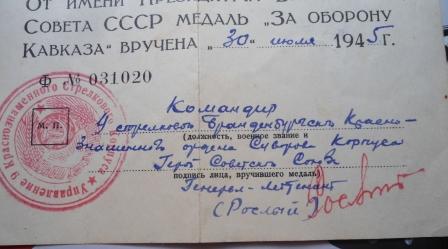 От имени Президиума В
Совета СССР медаль „За оборону
Кавказа“ вручена „30“ июля 1945 г.
Ф № 031020
Командир
стрелкового Бранденбургск Красно-
(должность, военное звание и
Знаменного ордена Суворова Корпуса
М. П.
Герой Советск Союза
подпись лица, вручившего медаль)
Генерал-лейтенант
(Рослый)
Управление 9 Краснознаменного Стрелкового Корпуса